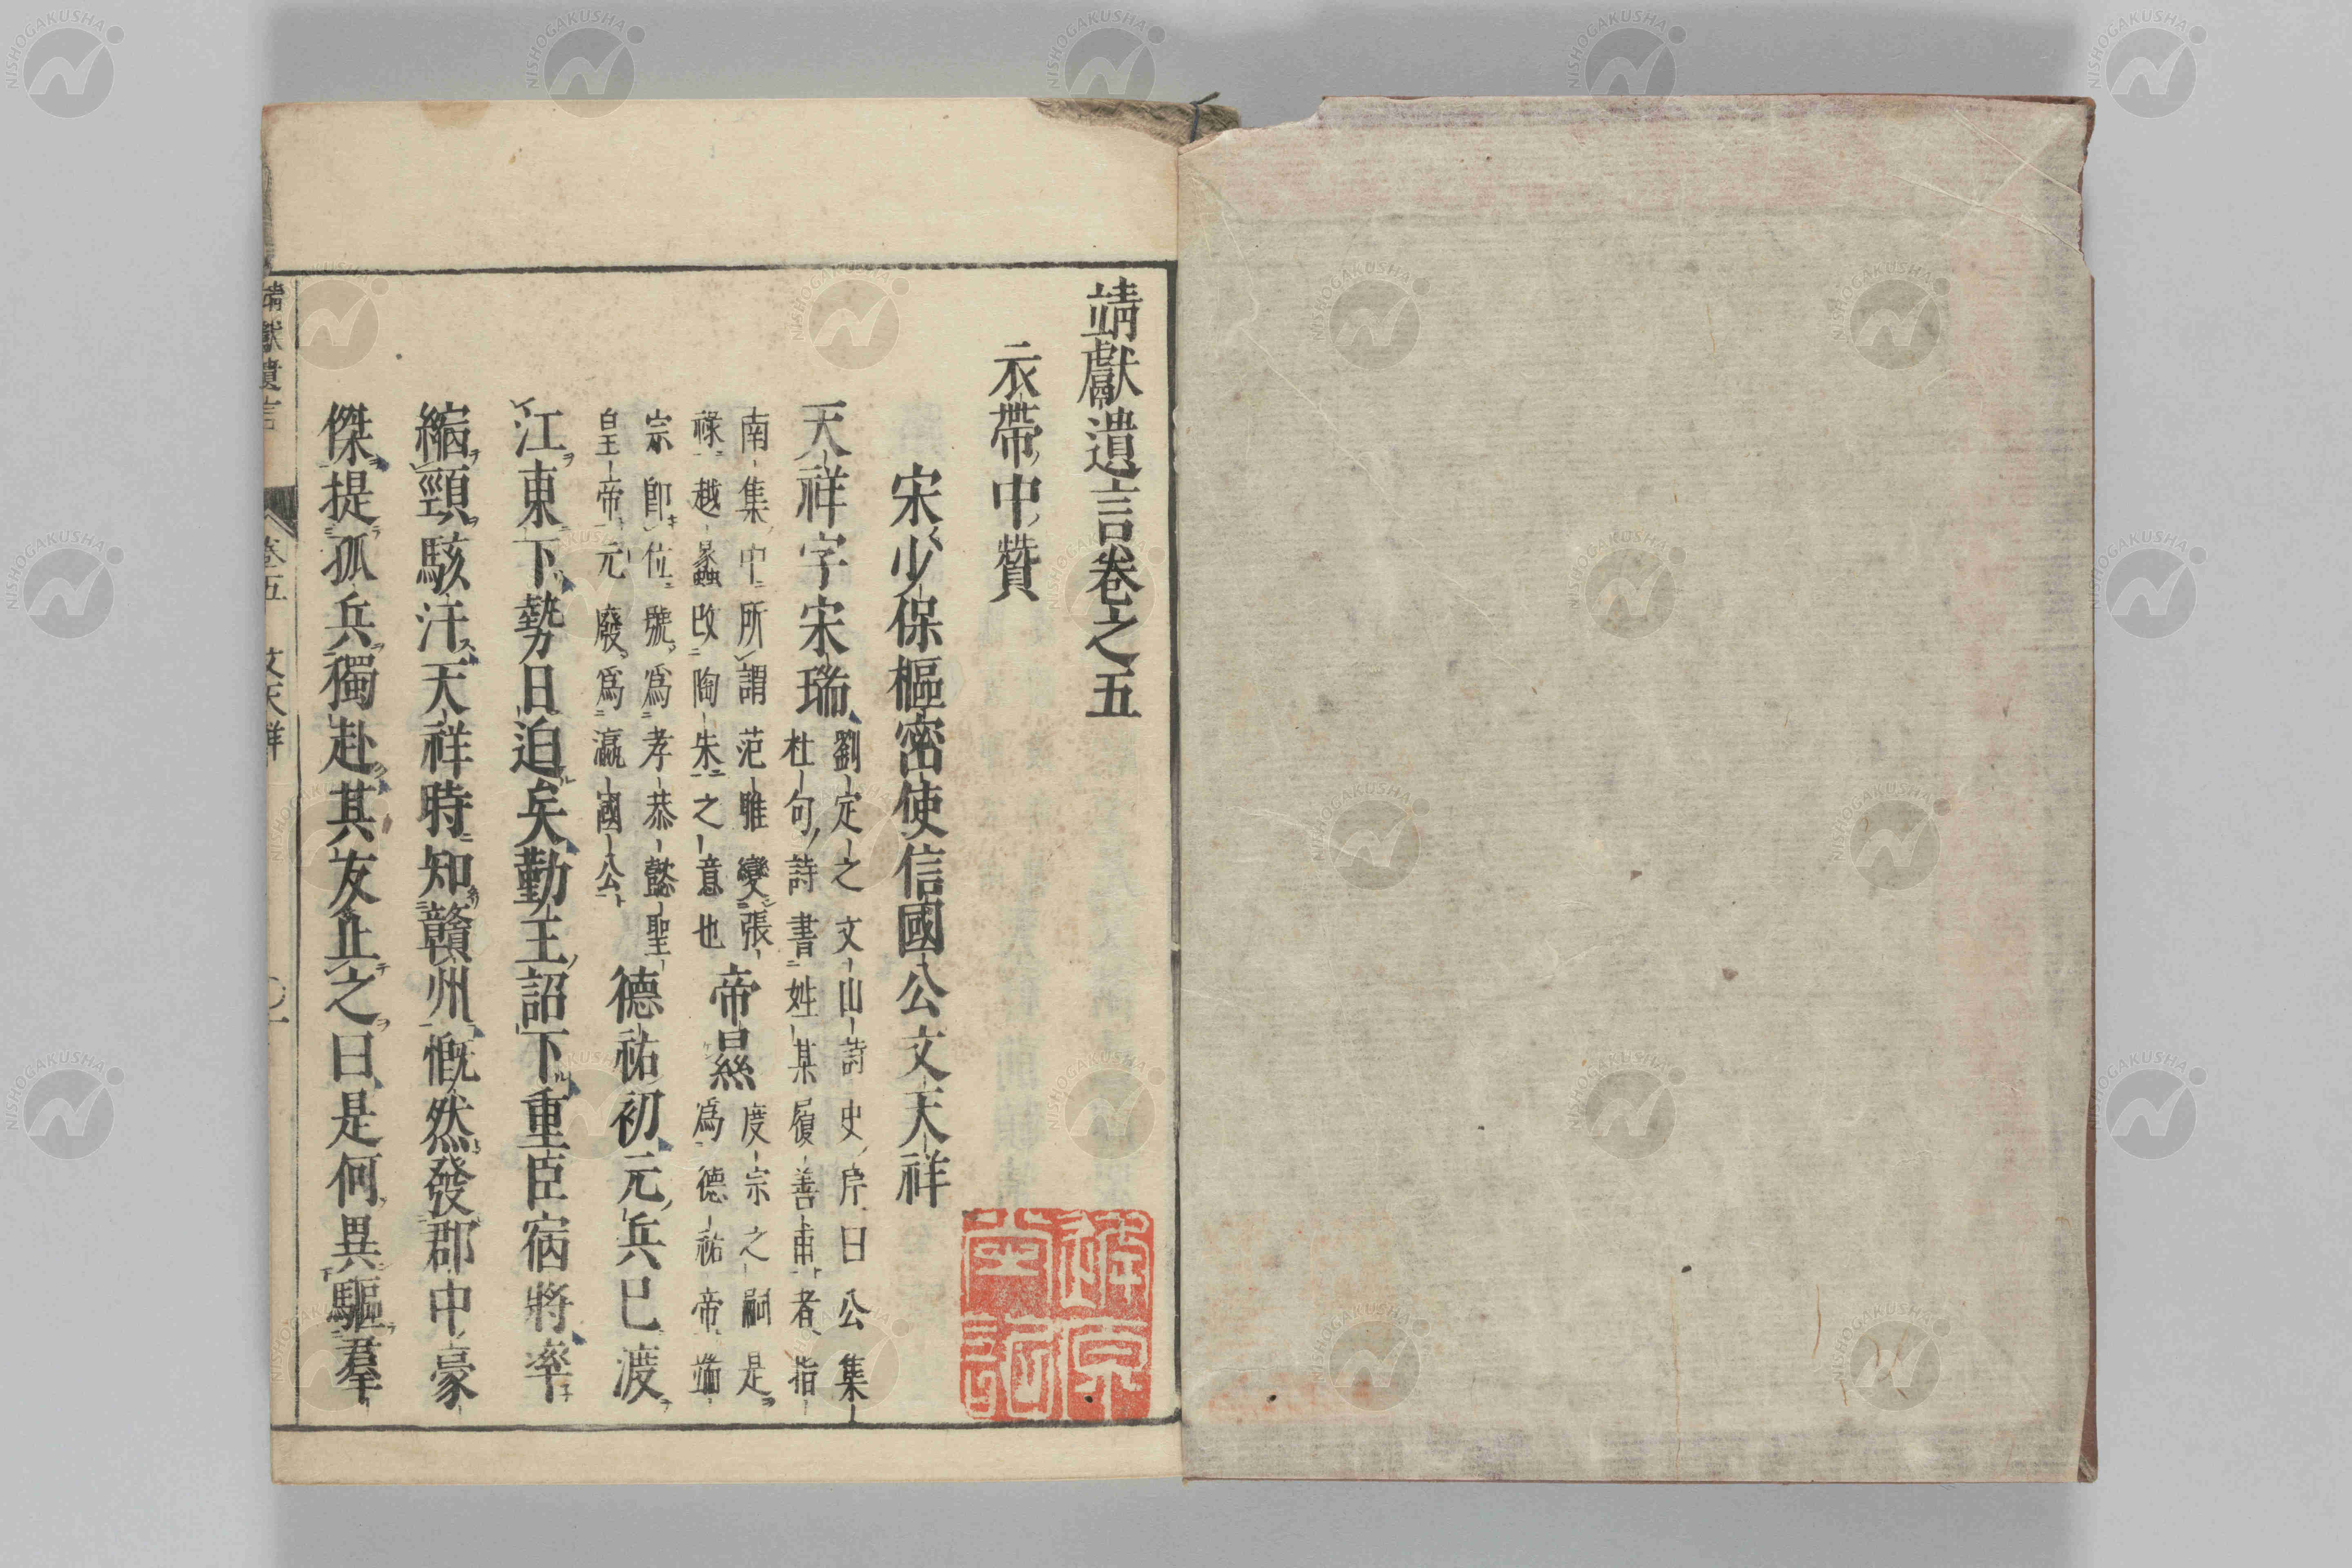 靖獻遺言卷之五
衣帶中贊
宋少保樞密使信國公文天祥
天祥字宋瑞
劉定之文山詩史序曰公集
杜句詩書姓某履善甫者指
南集中所謂范雎變張
祿越蠡改陶朱之意也
帝㬎
度宗之嗣是
爲德祐帝端
宗卽位號爲孝恭懿聖
皇帝元廢爲瀛國公
德祐初元兵已渡
江東下勢日迫矣勤王詔下重臣宿將率
縮頸駭汗天祥時知贛州慨然發郡中豪
傑提孤兵獨赴其友止之曰是何異驅羣
靖獻遺言
卷五
文天祥
NISHOGAKUSHA